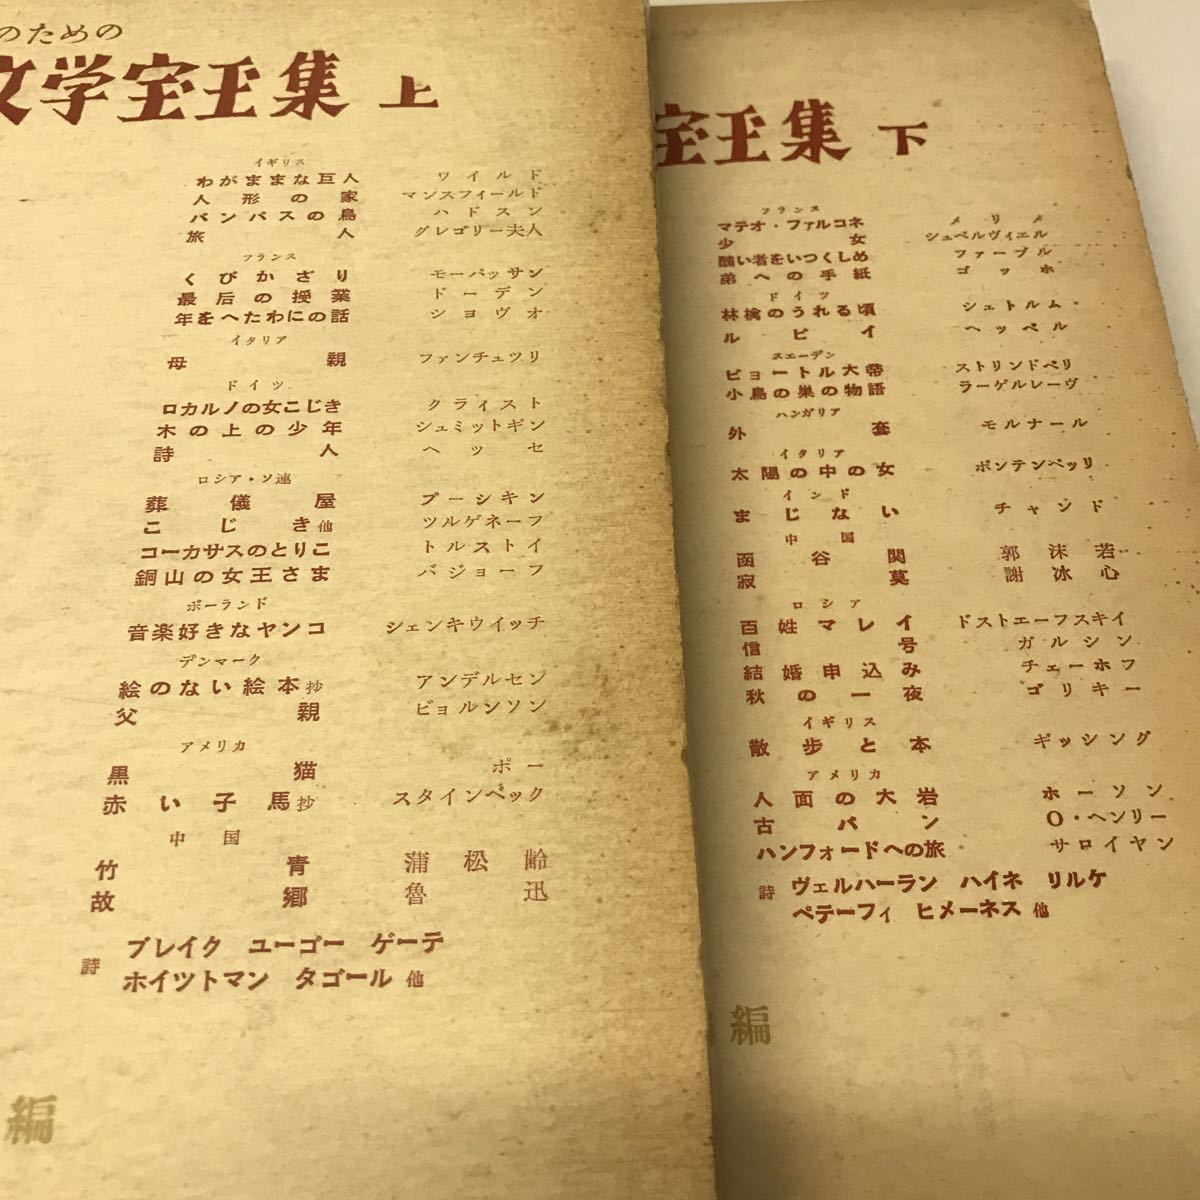 のための
文学宝玉集 上
イギリス
わがままな巨人 ワイルド
人形の家 マンスフィールド
パンパスの鳥 ハドスン
旅人 グレゴリー夫人
フランス
くびかざり モーパッサン
最后の授業 ドーデン
年をへたわにの話 ショヴオ
イタリア
母親 ファンチュツリ
ドイツ
ロカルノの女こじき クライスト
木の上の少年 シュミットギン
詩人 ヘッセ
ロシア・ソ連
葬儀屋 プーシキン
こじき他 ツルゲネーフ
コーカサスのとりこ トルストイ
銅山の女王さま バジョーフ
ポーランド
音楽好きなヤンコ シェンキウイッチ
デンマーク
絵のない絵本抄 アンデルセン
父親 ビョルンソン
アメリカ
黒猫 ポー
赤い子馬抄 スタインベック
中国
竹青 蒲松齢
故郷 魯迅
詩 ブレイク ユーゴー ゲーテ
ホイツトマン タゴール 他
編
宝玉集 下
フランス
マテオ・ファルコネ メリメ
少女 シュペルヴィエル
醜い者をいつくしめ ファーブル
弟への手紙 ゴッホ
ドイツ
林檎のうれる頃 シュトルム
ルビイ ヘッベル
スエーデン
ピョートル大帝 ストリンドベリ
小鳥の巣の物語 ラーゲルレーヴ
ハンガリア
外套 モルナール
イタリア
太陽の中の女 ボンテンペッリ
インド
まじない チャンド
中国
函谷関 郭沫若
寂莫 謝冰心
ロシア
百姓マレイ ドストエーフスキイ
信号 ガルシン
結婚申込み チェーホフ
秋の一夜 ゴリキー
イギリス
散歩と本 ギッシング
アメリカ
人面の大岩 ホーソン
古パン O・ヘンリー
ハンフォードへの旅 サロイヤン
詩 ヴェルハーラン ハイネ リルケ
ペテーフィ ヒメーネス 他
編